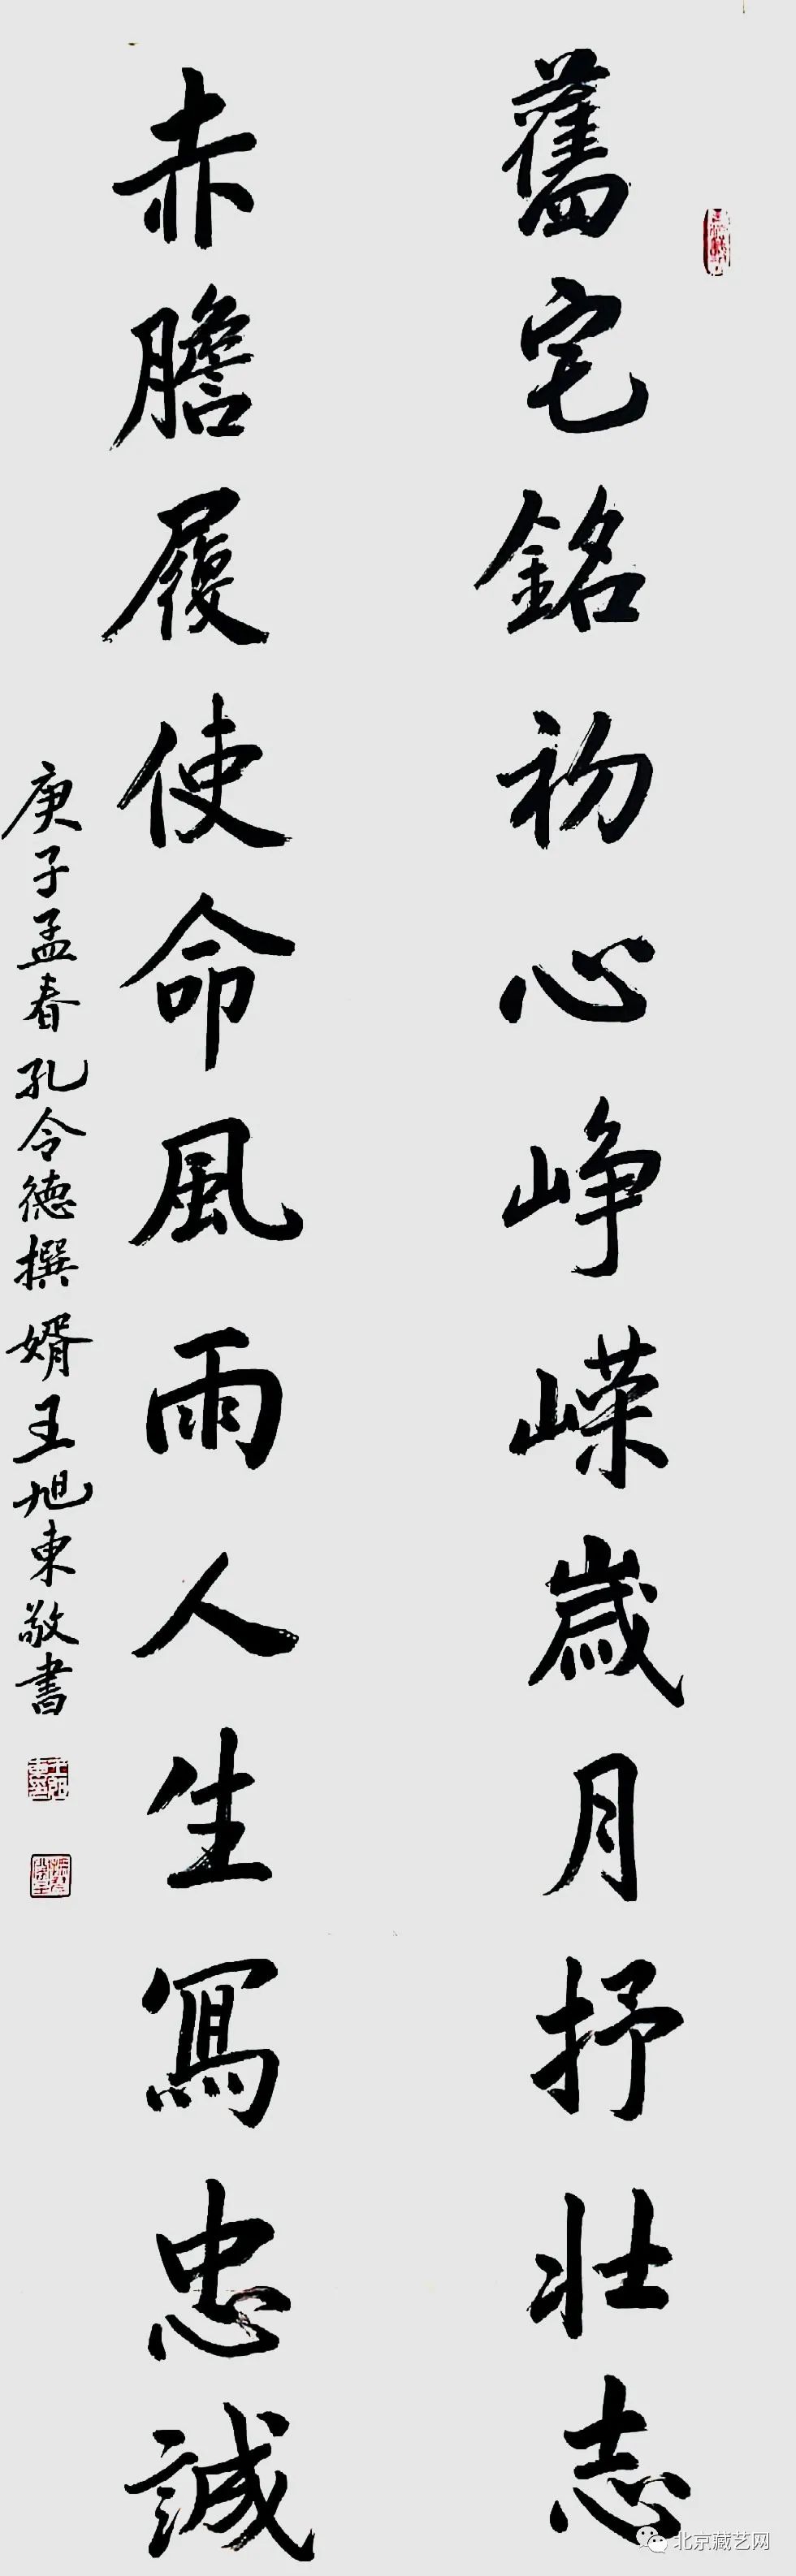 舊宅銘初心崢嶸歲月抒壯志
赤膽履使命風雨人生寫忠誠
庚子孟春孔令德撰婿王旭東敬書
北京藏艺网